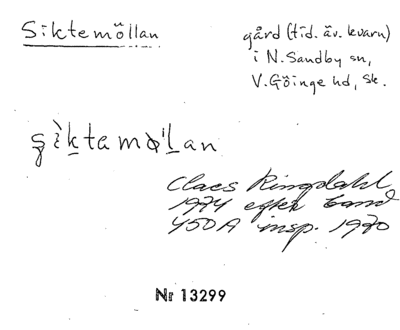 Siktemöllan
gård (tid. äv. kvarn)
i N. Sandby sn,
V. Göinge hd, Sk.
Claes Ringdahl
1974 efter band
450A insp. 1970
Nr 13299